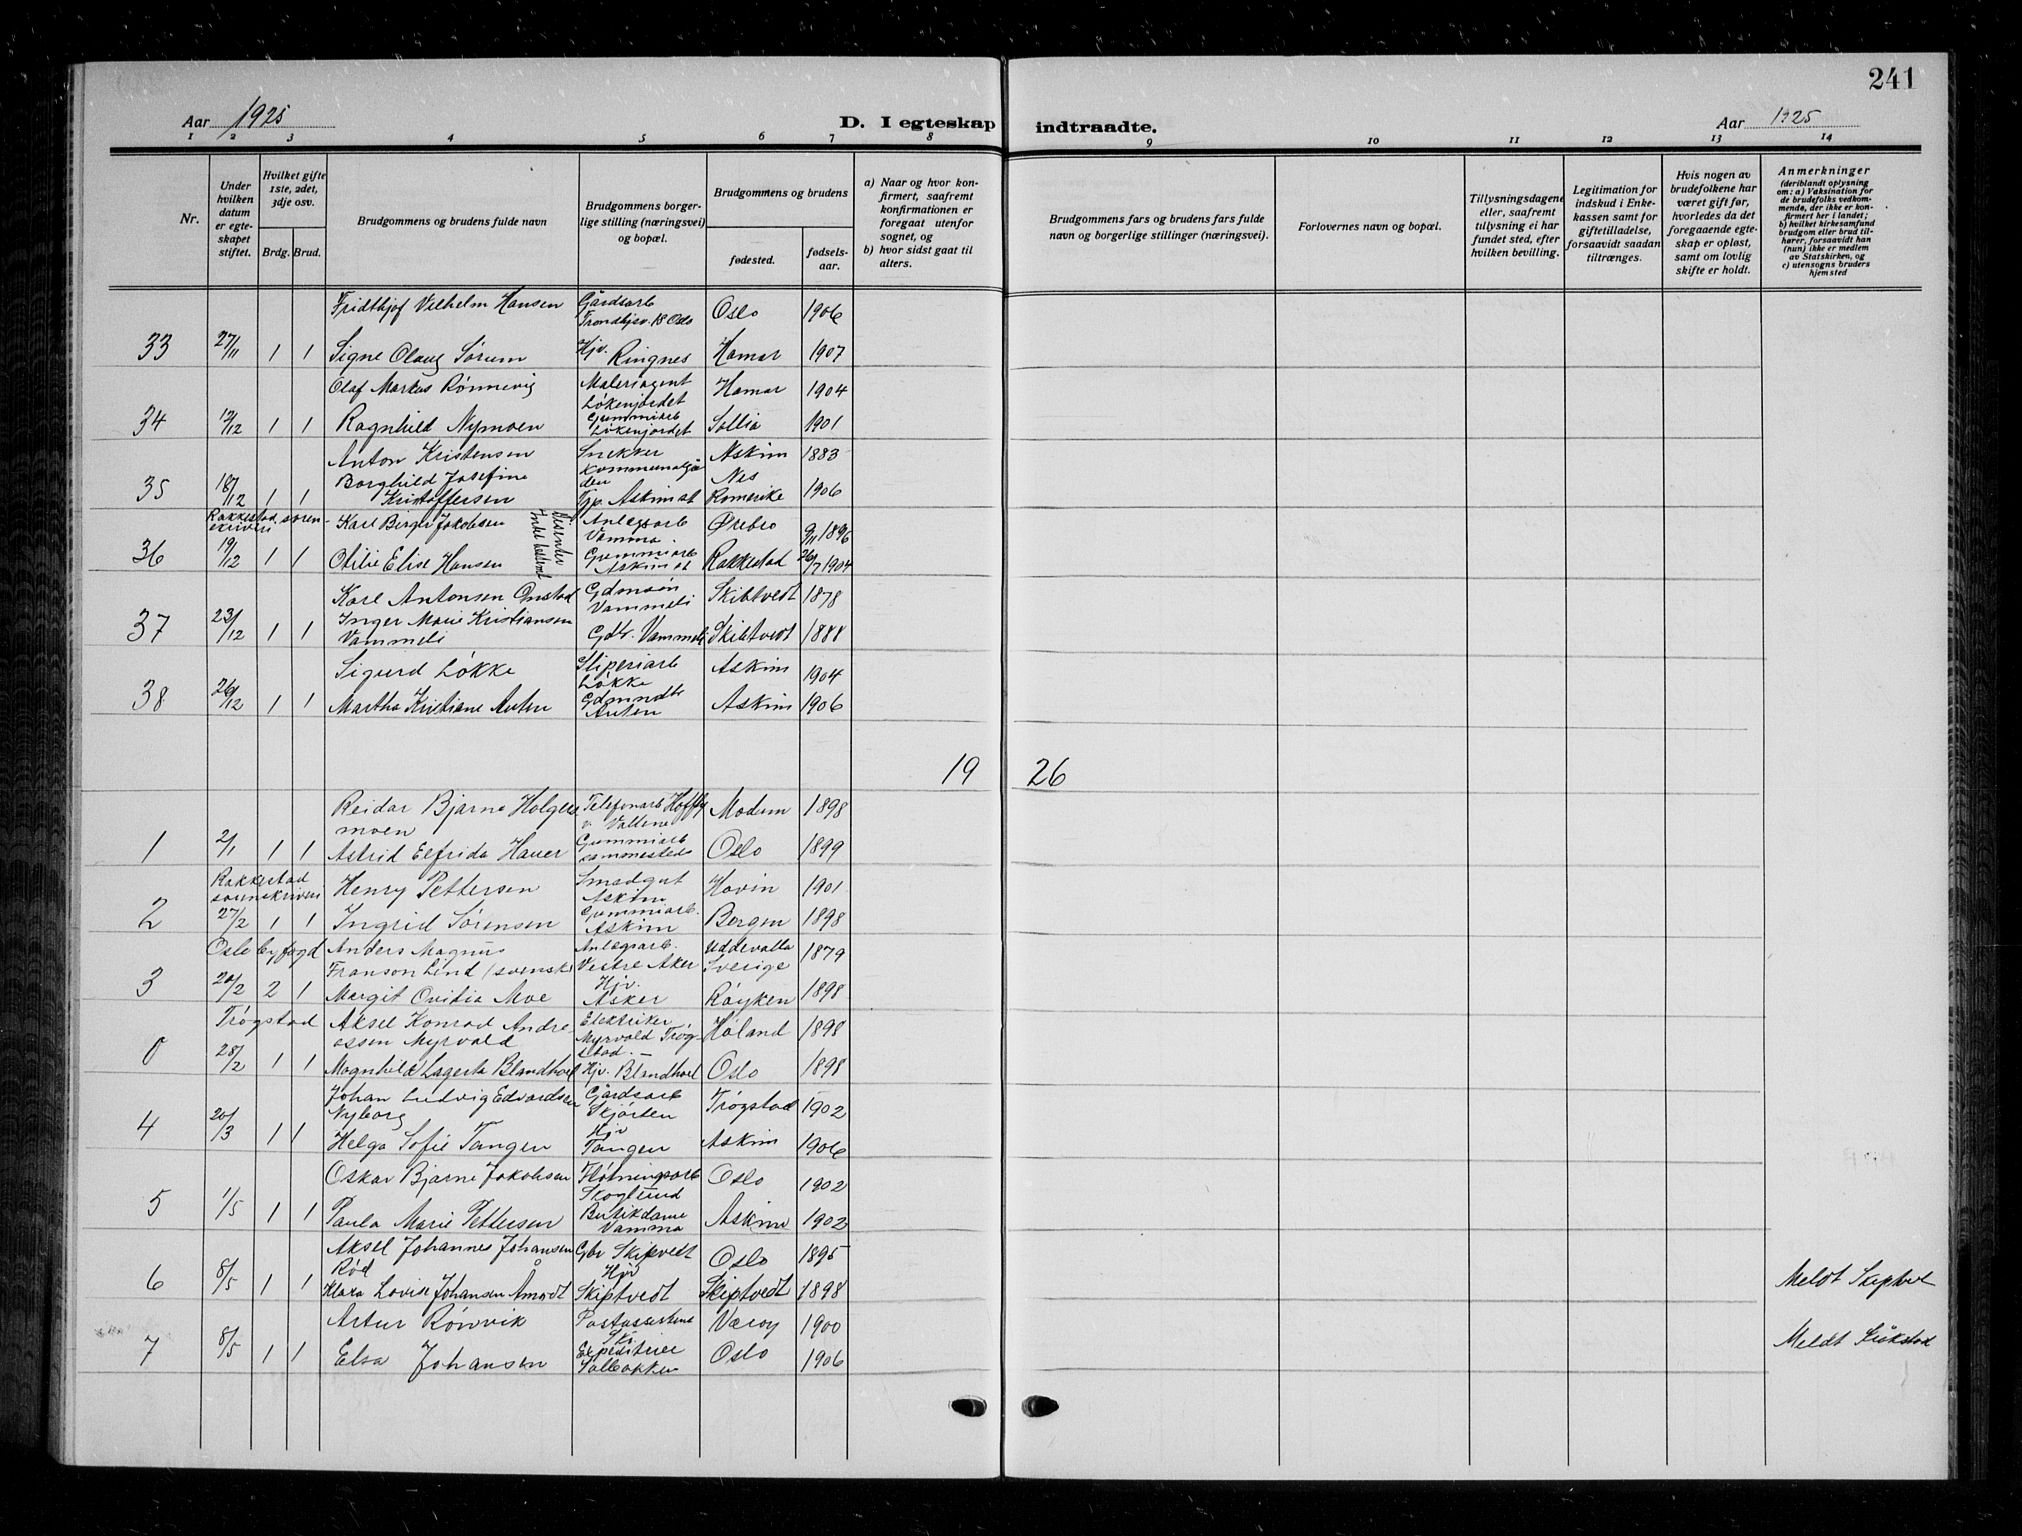 241
Aar 1925
D. I egteskap indtraadte.
Aar 1925
1 2 3 4 5 6 7 8 9 10 11 12 13 14
Nr.
Under hvilken datum er egteskapet stiftet.
Hvilket gifte 1ste, 2det, 3dje osv.
Brdg. Brud.
Brudgommens og brudens fulde navn
Brudgommens borgerlige stilling (næringsvei) og bopæl.
Brudgommens og brudens
fødested.
fødselsaar.
a) Naar og hvor konfirmert, saafremt konfirmationen er foregaat utenfor sognet, og
b) hvor sidst gaat til alters.
Brudgommens fars og brudens fars fulde navn og borgerlige stillinger (næringsvei).
Forlovernes navn og bopæl.
Tillysningsdagene eller, saafremt tillysning ei har fundet sted, efter hvilken bevilling.
Legitimation for indskud i Enkekassen samt for giftetilladelse, forsaavidt saadan tiltrænges.
Hvis nogen av brudefolkene har været gift før, hvorledes da det foregaaende egteskap er opløst, samt om lovlig skifte er holdt.
Anmerkninger
(deriblandt oplysning om: a) Vaksination for de brudefolks vedkommende, der ikke er konfirmert her i landet; b) hvilket kirkesamfund brudgom eller brud tilhører, forsaavidt han (hun) ikke er medlem av Statskirken, og c) utensogns bruders hjemsted
Fridthjof Vilhelm Hansen Gårdsarb Trondhjsv. 18 Oslo Oslo 1906
33 27/11 1 1 Signe Olaug Sørum Hjv. Ringnes Hamar 1907
Olaf Markus Rønnevig Maleriagent Løkenjordet Hamar 1904
34 12/12 1 1 Ragnhild Nymoen Gummiarb Løkenjordet Sollia 1901
Anton Kristensen Snekker Kommunalgården Askim 1883
35 18/12 1 1 Borghild Josefine Kristoffersen Tjp. Askim st Nes Romerike 1906
Rakkestad sorenskriveri Karl Berger Jakobsen Dissenter Anlegsarb Vamma. Ørebro 9/11 1896
36 19/12 1 1 Otilie Elise Hansen Gummiarb Askim st Rakkestad 26/7 1904
Karl Antonsen Onstad Gdmsøn Vammeli Skibtvedt 1878
37 23/12 1 1 Inger Marie Kristiansen Vammeli Gdb. Vammeli Skibtvedt 1888
Sigurd Løkke Sliperiarb Løkke Askim 1904
38 26/12 1 1 Martha Kristiane Anten Gdmndtr Anten Askim 1906
19 26
Reidar Bjarne Holgersmoen Telefonarb Hoffby v. Vallene Modum 1898
1 2/1 1 1 Astrid Elfrida Hauer Gummiarb sammesteds Oslo 1899
Rakkestad sorenskriveri Henry Pettersen Smedgut Askim Hovin 1901
2 27/2 1 1 Ingrid Sørensen Gummiarb. Askim Bergen 1898
Oslo byfogd Anders Magnus Franson Lind (svensk) Anlegsarb. Vestre Aker Uddevalla Sverige 1879
3 20/2 2 1 Margit Ovidia Moe Hjv. Asker Røyken 1898
Trøgstad Aksel Konrad Andreassen Myrvold Elektriker Myrvold Trøgstad. Høland 1898
0 28/2 1 1 Magnhild Lagerta Blandhoel Hjv. Blandhoel Oslo 1898
Johan Ludvig Edvardsen Nyborg Gårdsarb Skjørten Trøgstad 1902
4 20/3 1 1 Helga Sofie Tangen Hjv Tangen Askim 1906
Oskar Bjarne Jakobsen Fløtningsarb Skoglund Oslo 1902
5 1/5 1 1 Paula Marie Pettersen Butikdame Vamma Askim 1902
Aksel Johannes Johansen Rød Gbr Skipvedt Oslo 1895
6 8/5 1 1 Klara Lovise Johansen Åmodt Hjv Skiptvedt Skiptvedt 1898 Meldt Skiptvet
Artur Rønvik Postassistent Ski. Værøy 1900
7 8/5 1 1 Elsa Johansen Expeditrice Solbakken Oslo 1906 Meldt